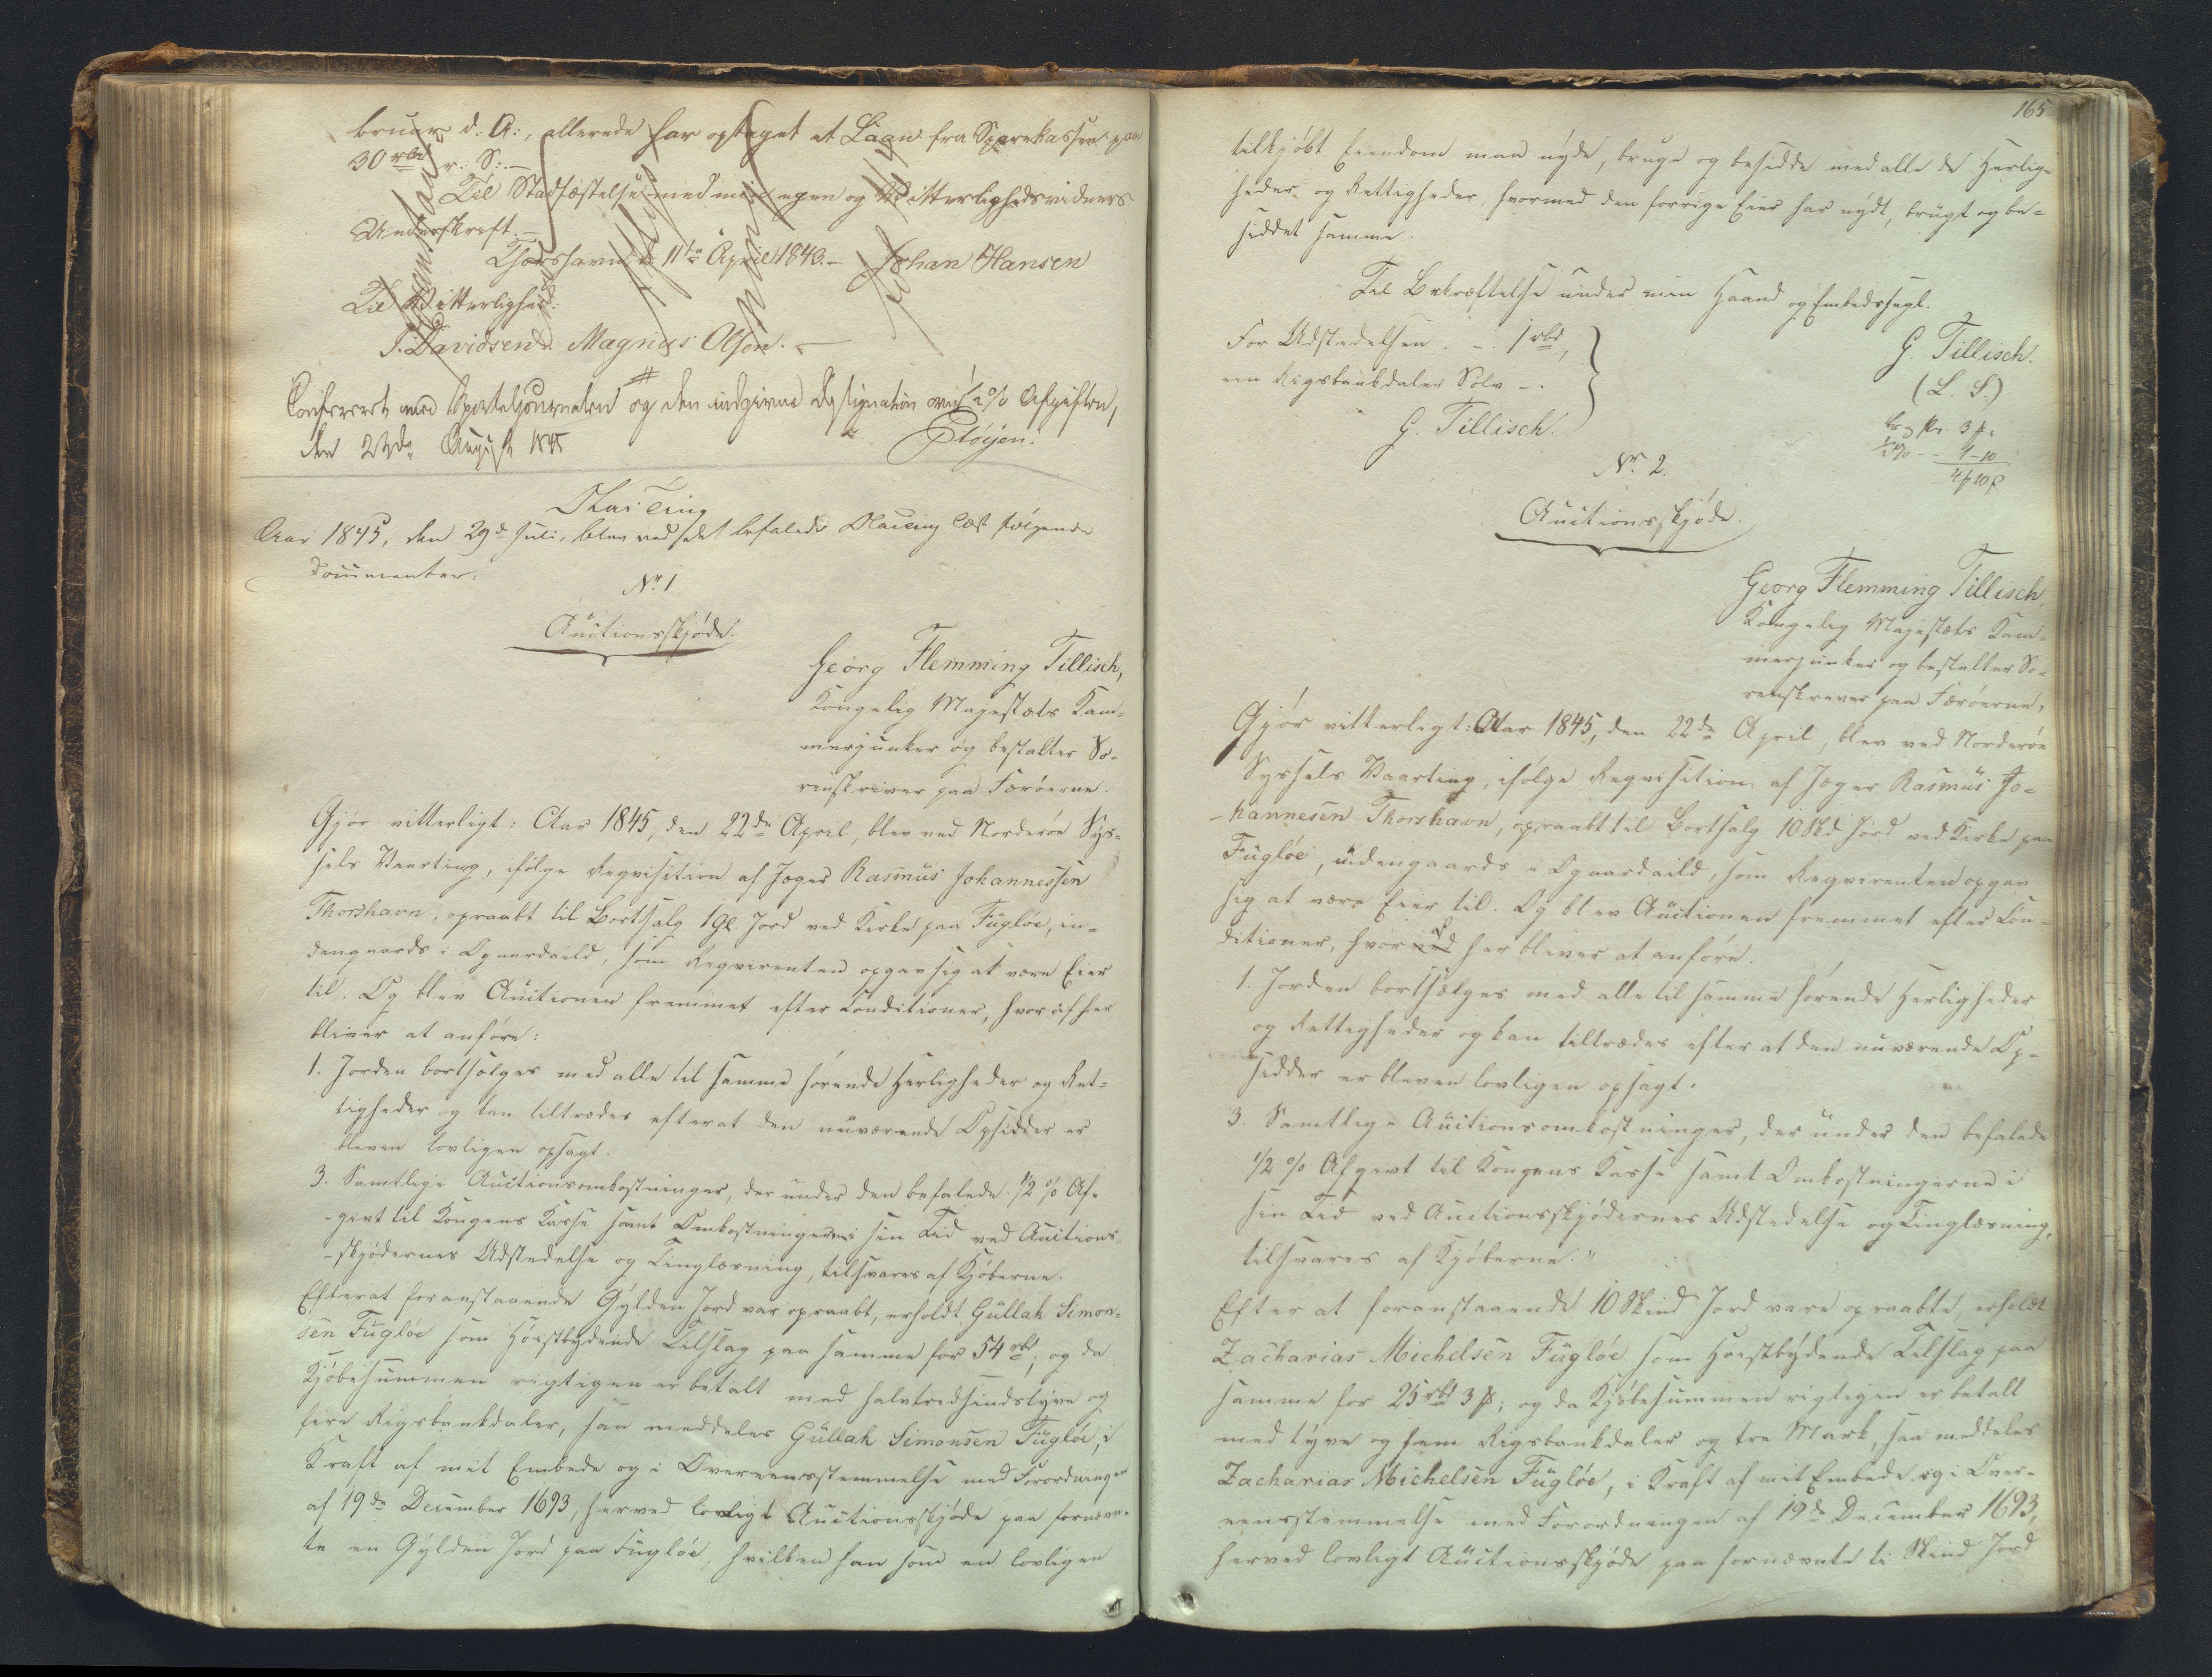 bruar d: A:, allerede har optaget et Laan fra Sparekassen paa
30 rbd r. S:. –
Til Stadfæstelse med min egen og Vitterlighedsvidners
Underskrift. –
Thorshavn d 11te April 1843. – Johan Hansen
Til Vitterlighed:
J. Davidsen. Magnus Olsen. –
Confereret med Sportelsjournalen og den indgivne Designation over ½% Afgiften,
den 23de August 1845 Pløyen.
Aar 1845, den 29d Juli, blev ved det befalede Olaiting læst følgende
Documenter:
Nr. 1
Auctionsskjøde.
Georg Flemming Tillisch,
Kongelig Majestæts Kam-
merjunker og bestalter So-
renskriver paa Færøerne.
Gjør vitterligt: Aar 1845, den 22de April, blev ved Norderøe Sys-
sels Vaarting, ifølge Reqvisition af Jæger Rasmus Johannessen
Thorshavn, opraabt til Bortsalg 1 Gl. Jord ved Kirke paa Fugløe, in-
dengaards i Ognardaild, som Reqvirenten opgav sig at være Eier
til. Og blev Auctionen fremmet efter Conditioner, hvoraf her
bliver at anføre:
1. Jorden bortsælges med alle til samme hørende Herligheder og Ret-
tigheder og kan tiltrædes efterat den nuværende Opsidder er
bleven lovligen opsagt.
3. Samtlige Auctionsomkostninger, derunder den befalede ½ % Af-
-givt til Kongens Kasse samt Omkostningerne i sin Tid ved Auctions-
-skjødernes Udstedelse og Tinglæsning, tilsvares af Kjøberne.
Efterat foranstaaende Gylden Jord var opraabt, erholdt Gullak Simon-
sen Fugløe som Høistbydende Tilslag paa samme for 54 rbd; og da
Kjøbesummen rigtigen er betalt med halvtredsindstyve og
fire Rigsbankdaler, saa meddeles Gullak Simonsen Fugløe, i
Kraft af mit Embede og i Overeensstemmelse med Forordningen
af 19de December 1693, herved lovligt Auctionsskjøde paa fornævn-
te en Gylden Jord paa Fugløe, hvilken han som en lovligen
165
tilkjøbt Eiendom maa nyde, bruge og besidde med alle de Herlig-
heder og Rettigheder, hvormed den forrige Eier har nydt, brugt og be-
siddet samme.
Til Bekræftelse under min Haand og Embedssegl.
For Udstedelsen. – . 1 rbd,
een Rigsbankdaler Sølv – .
G. Tillisch.
G. Tillisch.
(L. S.)
½% - - 1 – 10
Nr. 2.
Auctionsskjøde.
Georg Flemming Tillisch,
Kongelig Majestæts Kam-
merjunker og bestalter So-
renskriver paa Færøerne,
Gjør vitterligt: Aar 1845, den 22de April, blev ved Norderøe
Syssels Vaarting, ifølge Reqvisition af Jæger Rasmus Jo-
-hannesen Thorshavn, opraabt til Bortsalg 10 Skd Jord ved Kirke paa
Fugløe, udengaards i Ognardaild, som Reqvirenten opgav
sig at være Eier til. Og blev Auctionen fremmet efter Con-
ditioner, hvoraf her bliver at anføre.
1. Jorden bortsælges med alle til samme hørende Herligheder
og Rettigheder og kan tiltrædes efter at den nuværende Op-
sidder er bleven lovligen opsagt.
3. Samtlige Auctionsomkostninger, derunder den befalede
½ % Afgivt til Kongens Kasse samt Omkostningerne i
sin Tid ved Auctionsskjødernes Udstedelse og Tinglæsning,
tilsvares af Kjøberne."
Efter at foranstaaende 10 Skind Jord vare opraabte, erholdt
Zacharias Michelsen Fugløe som Høistbydende Tilslag paa
samme for 25 rbd 3 ꝟ; og da Kjøbesummen rigtigen er betalt
med tyve og fem Rigsbankdaler og tre Mark, saa meddeles
Zacharias Michelsen Fugløe, i Kraft af mit Embede og i Over-
eensstemmelse med Forordningen af 19de December 1693,
herved lovligt Auctionsskjøde paa fornævnte ti Skind Jord